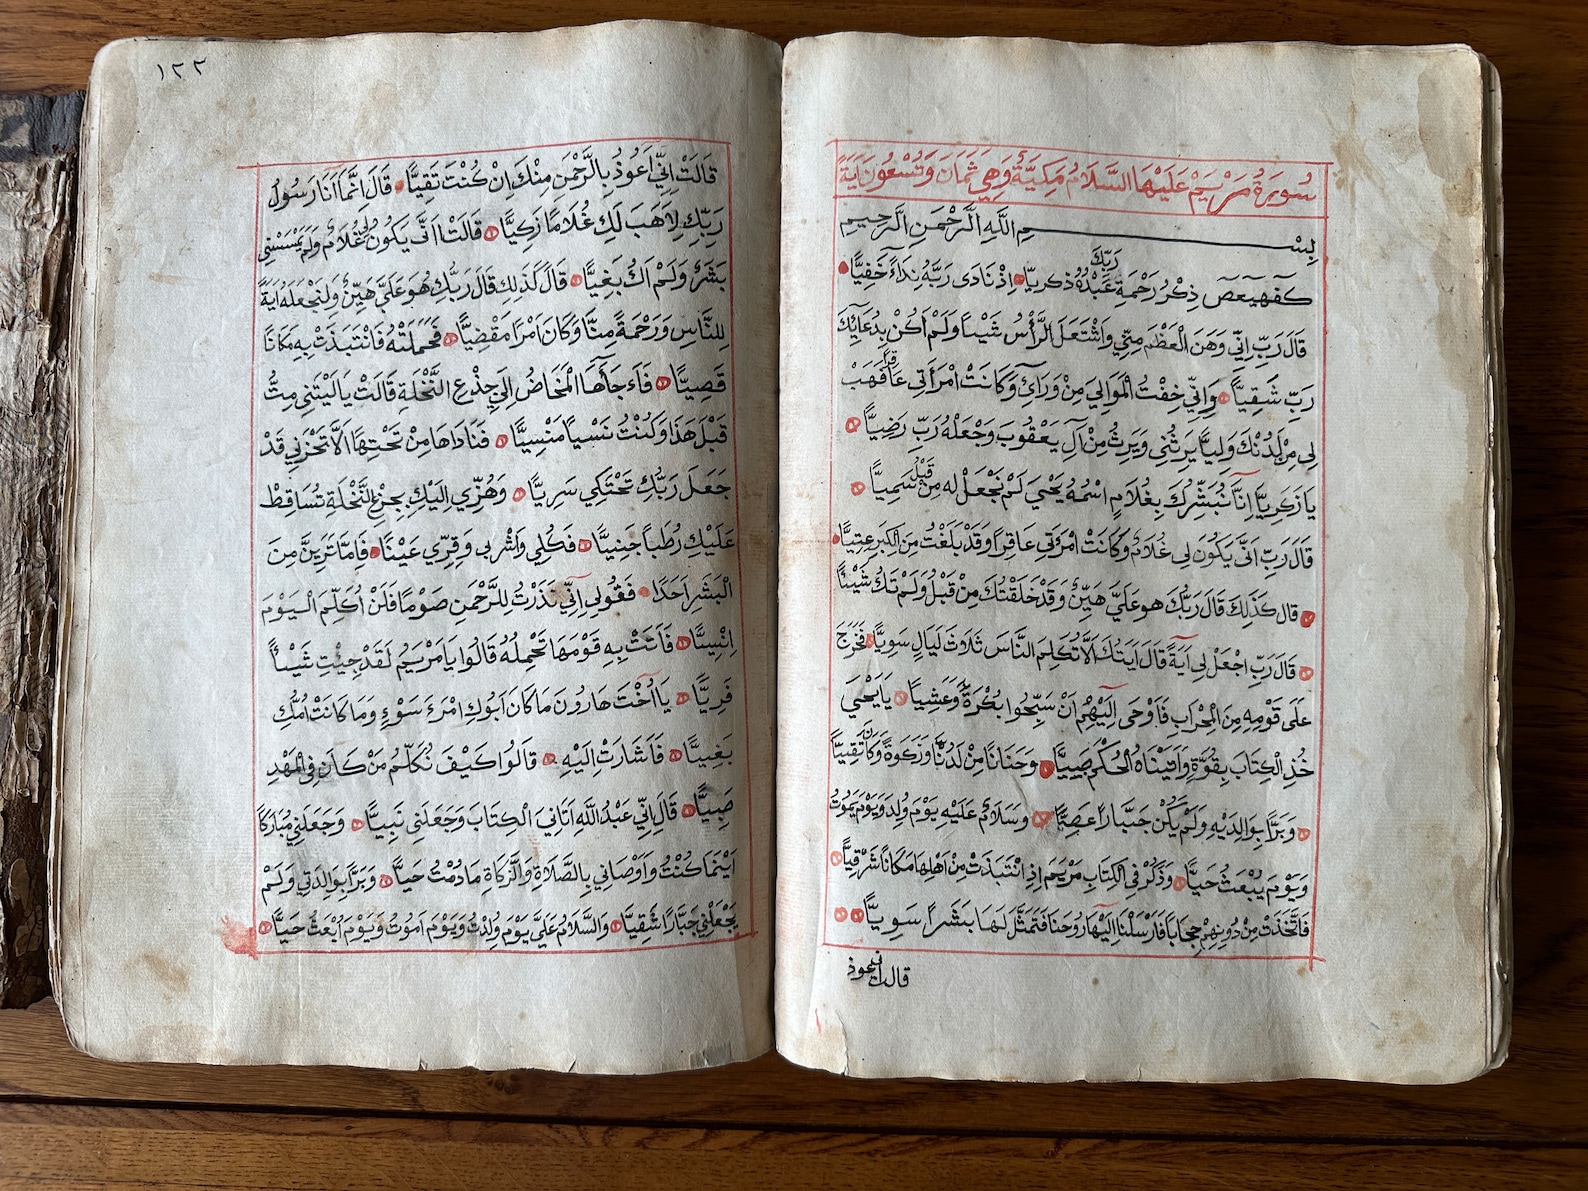 سُورَةُ مَرْيَمْ عَلَيْهَا السَّلَامُ مَكِيَّةٌ وَهِيَ ثَمَانَ وَتُسْعُونَ اَيَةً
بِسْمِ اللَّهِ الرَّحْمَنِ الرَّحِيمِ
كٓهٰيٰعٓصٓ ذِكْرُ رَحْمَةِ رَبِّكَ عَبْدَهُ ذكريّا اِذْ نَادَى رَبَّهُ نِدَاءً خَفِيًّا
قَالَ رَبِّ اِنِّي وَهَنَ الْعَظْمَ مِنِّي وَاشْتَعَلَ الرَّأْسُ شَيْبًا وَلَمْ اَكُنْ بِدُعَائِكَ
رَبِّ شَقِيًّا وَاِنِّي خِفْتُ الْمَوَالِيَ مِنْ وَرَآئِ وَكَانَتْ امْرَأَتِي عَاقِرًا فَهَبْ
لِي مِنْ لَدُنْكَ وَلِيًّا يَرِثُنِي وَيَرِثُ مِنْ آلِ يَعْقُوبَ وَجْعَلْهُ رَبِّ رَضِيًّا
يَا زَكَرِيَّا اِنَّا نُبَشِّرُكَ بِغُلَامٍ اسْمُهُ يَحْيَى لَمْ نَجْعَلْ له مِنْ قَبْلُ سَمِيًّا
قَالَ رَبِّ اَنَّى يَكُونُ لِي غُلَامٌ وَكَانَتْ امْرَتِي عَاقِرًا وَقَدْ بَلَغْتُ مِنَ الْكِبَرِ عِتِيًّا
قال كَذَلِكَ قَالَ رَبُّكَ هو عَلَيَّ هَيِّنٌ وَقَدْ خَلَقْتُكَ مِنْ قَبْلُ وَلَمْ تَكُ شَيْئًا
قَالَ رَبِّ اجْعَلْ لِي آيَةً قَالَ اَيَتُكَ اَلَّا تُكَلِّمَ النَّاسَ ثَلَاثَ لَيَالٍ سَوِيًّا فَخَرَجَ
عَلَى قَوْمِهِ مِنَ الْمِحْرَابِ فَاَوْحَى اِلَيْهِمْ اَنْ سَبِّحُوا بُكْرَةً وَعَشِيًّا يَا يَحْيَى
خُذِ الْكِتَابَ بِقُوَّةٍ وَاٰتَيْنَاهُ الْحُكْمَ صَبِيًّا وَحَنَانًا مِنْ لَدُنَّا وَزَكَوةً وَكَانَ تَقِيًّا
وَبَرًّا بِوَالِدَيْهِ وَلَمْ يَكُنْ جَبَّارًا عَصِيًّا وَسَلَامٌ عَلَيْهِ يَوْمَ وُلِدَ وَيَوْمَ يَمُوتُ
وَيَوْمَ يُبْعَثُ حَيًّا وَذْكُرْ فِي الْكِتَابِ مَرْيَمَ اِذِ انْتَبَذَتْ مِنْ اَهْلِهَا مَكَانًا شَرْقِيًّا
فَاتَّخَذَتْ مِنْ دُونِهِمْ حِجَابًا فَاَرْسَلْنَا اِلَيْهَا رُوحَنَا فَتَمَثَّلَ لَهَا بَشَرًا سَوِيًّا
قالت
١٢٢
قَالَتْ اِنِّي اَعُوذُ بِالرَّحْمَنِ مِنْكَ اِنْ كُنْتَ تَقِيًّا قَالَ اِنَّمَا اَنَا رَسُولُ
رَبِّكِ لِاَهَبَ لَكِ غُلَامًا زَكِيًّا قَالَتْ اَنَّى يَكُونُ لِي غُلَامٌ وَلَمْ يَمْسَسْنِي
بَشَرٌ وَلَمْ اَكُ بَغِيًّا قَالَ كَذَلِكِ قَالَ رَبُّكِ هُوَ عَلَيَّ هَيِّنٌ وَلِنَجْعَلَهُ اَيَةً
لِلنَّاسِ وَرَحْمَةً مِنَّا وَكَانَ اَمْرًا مَقْضِيًّا فَحَمَلَتْهُ فَانْتَبَذَتْ بِهِ مَكَانًا
قَصِيًّا فَاَجَآهَا الْمَخَاضُ اِلَى جِذْعِ النَّخْلَةِ قَالَتْ يَا لَيْتَنِي مِتُّ
قَبْلَ هَذَا وَكُنْتُ نَسْيًا مَنْسِيًّا فَنَادَاهَا مِنْ تَحْتِهَا اَلَّا تَحْزَنِي قَدْ
جَعَلَ رَبُّكِ تَحْتَكِي سَرِيًّا وَهُزِّي اِلَيْكِ بِجِذْعِ النَّخْلَةِ تُسَاقِطْ
عَلَيْكِ رُطَبًا جَنِيًّا فَكُلِي وَاشْرَبِي وَقِرِّي عَيْنًا فَاِمَّا تَرَيِنَّ مِنَ
الْبَشَرِ اَحَدًا فَقُولِي اِنِّي نَذَرْتُ لِلرَّحْمَنِ صَوْمًا فَلَنْ اُكَلِّمَ الْيَوْمَ
اِنْسِيًّا فَاَتَتْ بِهِ قَوْمَهَا تَحْمِلُهُ قَالُوا يَا مَرْيَمُ لَقَدْ جِئْتِ شَيْئًا
فَرِيًّا يَا اُخْتَ هَارُونَ مَا كَانَ اَبُوكِ امْرَءَ سَوْءٍ وَمَا كَانَتْ اُمُّكِ
بَغِيًّا فَاَشَارَتْ اِلَيْهِ قَالُوا كَيْفَ نُكَلِّمُ مَنْ كَانَ فِي الْمَهْدِ
صَبِيًّا قَالَ اِنِّي عَبْدُ اللَّهِ اَتَانِيَ الْكِتَابَ وَجَعَلَنِي نَبِيًّا وَجَعَلَنِي مُبَارَكًا
اَيْنَمَا كُنْتُ وَاَوْصَانِي بِالصَّلَاةِ وَالزَّكَاةِ مَا دُمْتُ حَيًّا وَبَرًّا بِوَالِدَتِي وَلَمْ
يَجْعَلْنِي جَبَّارًا شَقِيًّا وَالسَّلَامُ عَلَيَّ يَوْمَ وُلِدْتُ وَيَوْمَ اَمُوتُ وَيَوْمَ اُبْعَثُ حَيًّا